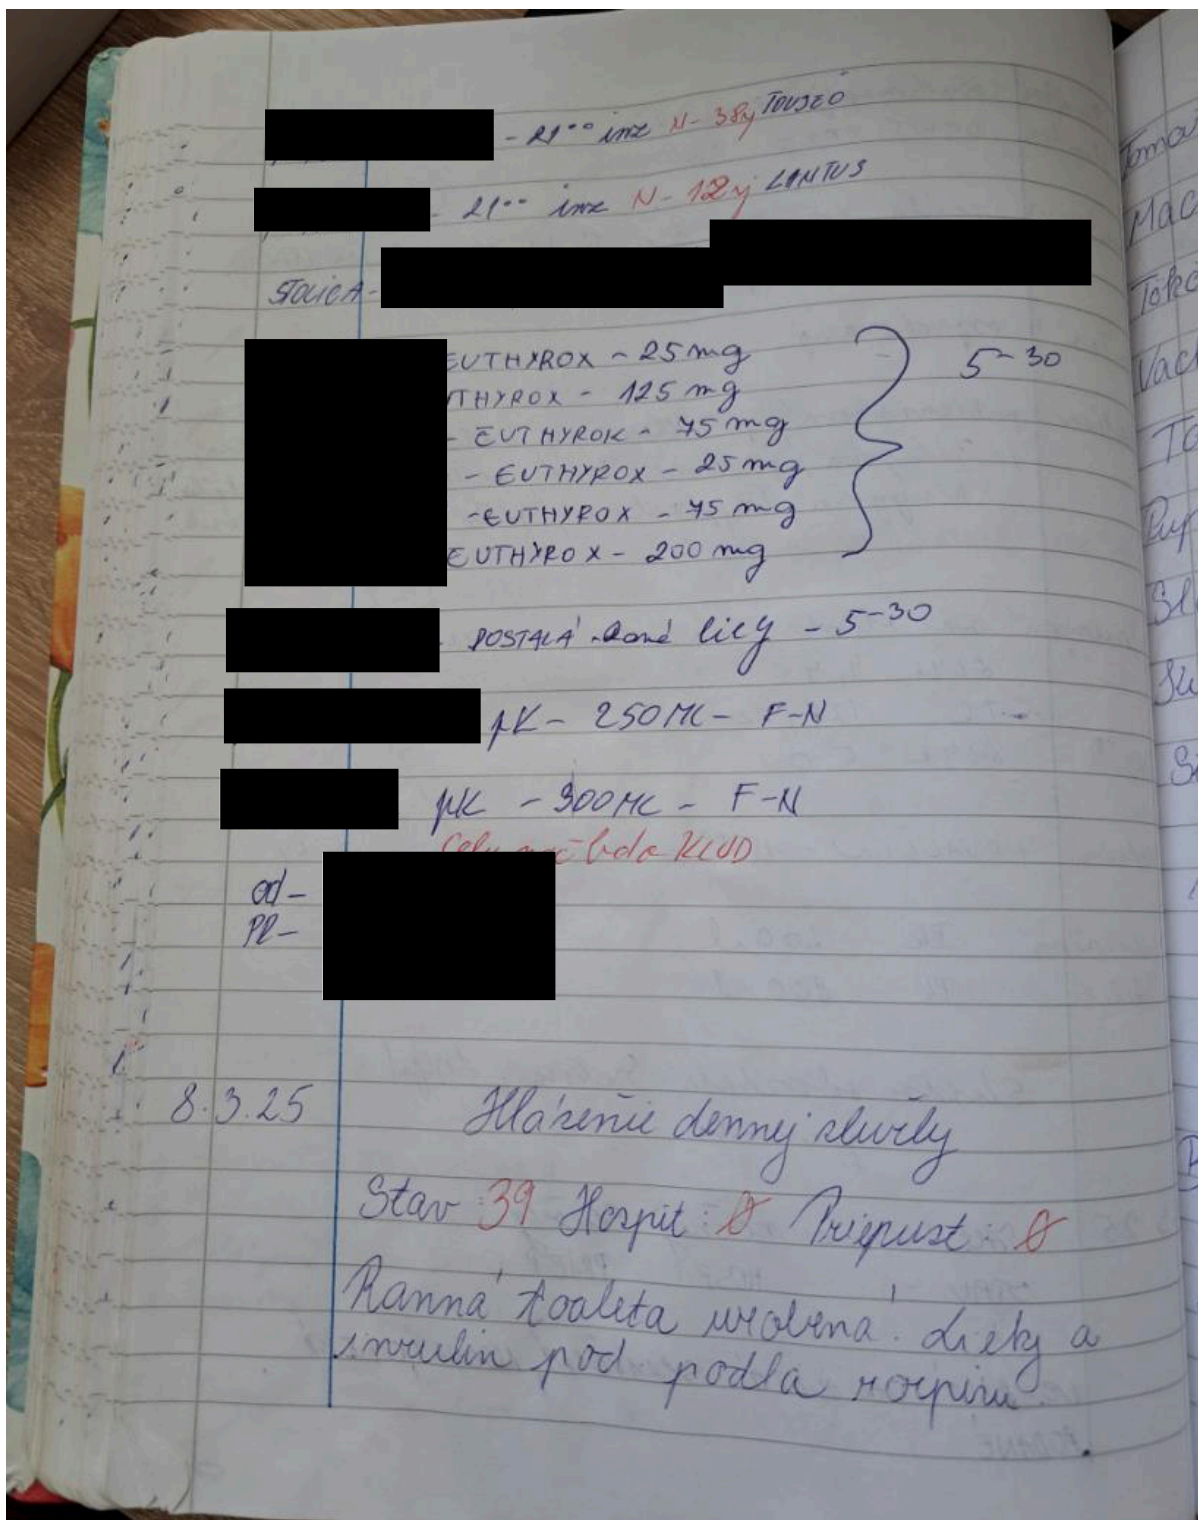 - 21°° inz N-38j TOUJEO
- 21°° inz N-12j LANTUS
STOLICA-
EUTHYROX - 25 mg
THYROX - 125 mg
- EUTHYROX - 75 mg
- EUTHYROX - 25 mg
-EUTHYROX - 75 mg
EUTHYROX - 200 mg
5-30
- POSTALÁ - lieky - 5-30
pK - 250 ML - F-N
pK - 900 ML - F-N
KĽUD
od-
PR-
8.3.25 Hlásenie dennej služby
Stav 39 Hospit: 0 Priepust: 0
Ranná toaleta urobená. Lieky a
inzulin pod podla rozpisu.
Toma
Mac
Toká
Vach
To
Pup
Sl